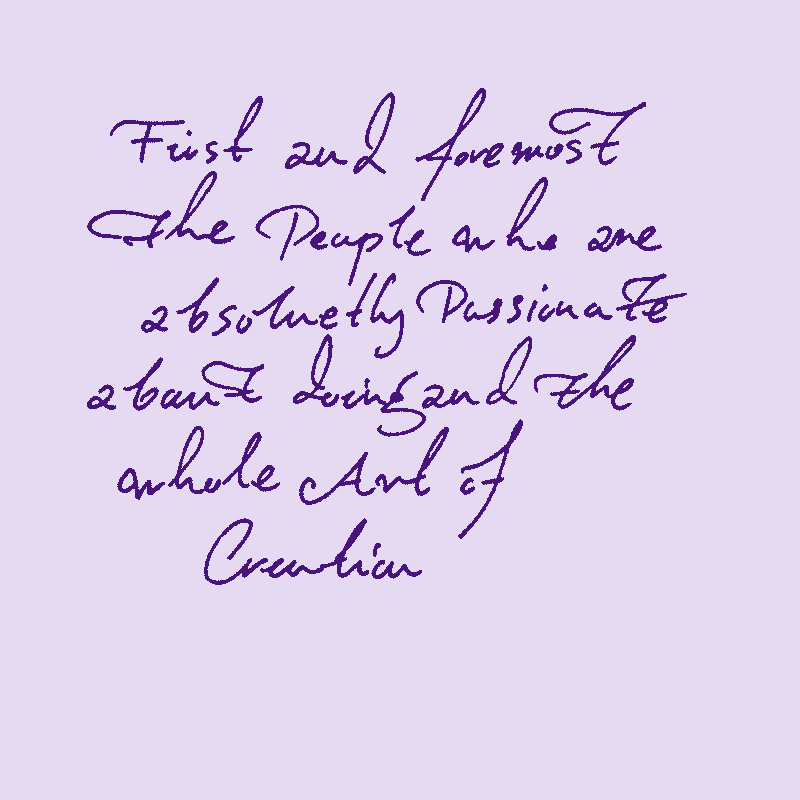 First and foremost
the People who are
absoluetly Passionate
about doing and the
whole Art of
Creation